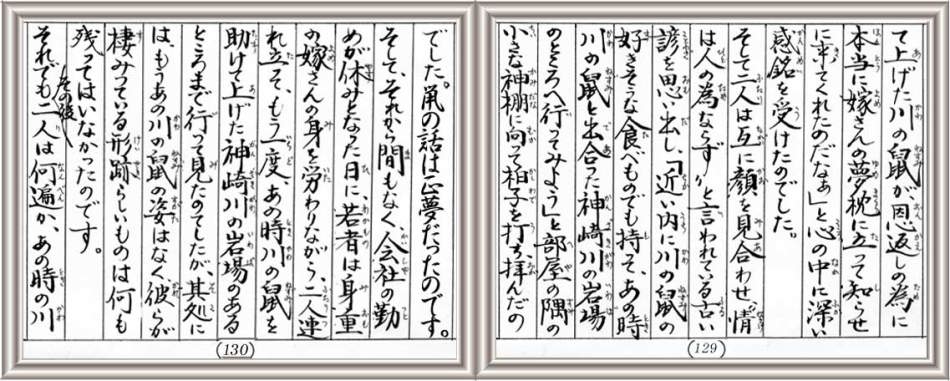 て上げた川の鼠が、恩返しの為に
本当に嫁さんの夢枕に立って知らせ
に来てくれたのだなぁ」と心の中に深い
感銘を受けたのでした。
そして二人は互に顔を見合わせ、〝情
は人の為ならず〟と言われている古い
諺を思い出し、「近い内に、川の鼠の
好きそうな食べものでも持って、あの時
川の鼠と出合った神崎川の岩場
のところへ行ってみよう」と部屋の隅の
小さな神棚に向って拍子を打ち、拝んだの
(129)
でした。鼠の話は正夢だったのです。
そして、それから間もなく、会社の勤
めが休みとなった日に、若者は身重
の嫁さんの身を労わりながら、二人連
れ立って、もう一度、あの時川の鼠を
助けて上げた神崎川の岩場のある
ところまで行って見たのでしたが、其処に
は、もうあの川の鼠の姿はなく、彼らが
棲みついている形跡らしいものは何も
残ってはいなかったのです。
それでもその後、二人は何遍か、あの時の川
(130)